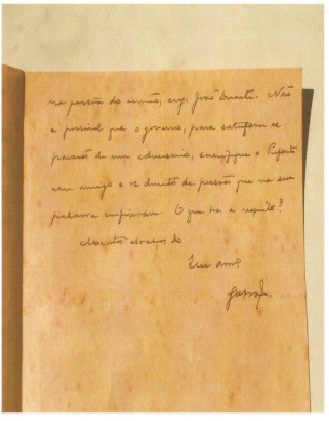 na pessôa do irmão, eng. João Duarte. Não
é possivel que o governo, para satisfazer as
paixões de um adversario, sacrifique o Prefeito
seu amigo e os direitos de pessôas que na sua
palavra confiavam. O que ha a respeito?
Muitos abraços do
Seu am.º